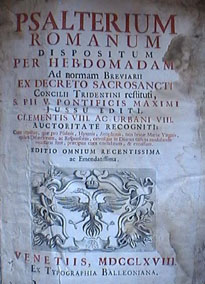 PSALTERIUM
ROMANUM
DISPOSITUM
PER HEBDOMADAM
Ad normam BREVIARII
EX DECRETO SACROSANCTI
CONCILII TRIDENTINI restituti,
S. PII V. PONTIFICIS MAXIMI
JUSSU EDITI,
CLEMENTIS VIII. AC URBANI VIII.
AUCTORITATE RECOGNITI:
EDITIO OMNIUM RECENTISSIMA
ac Emendatissima.
VENETIIS, MDCCLXVIII.
EX TYPOGRAPHIA BALLEONIANA.